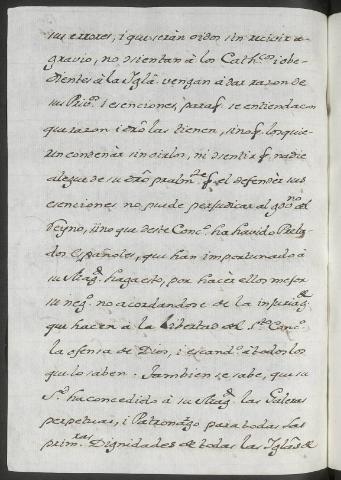 sus errores, i que serán oidos sin recivir a-
gravio, no sientan à los Cath.cos i obe-
dientes à la Iglã. vengan à dar razon de
su Priv.o i esenciones, para q se entienda con
que razon i dr̃o las tienen, sino q los quie-
ren condenàr sin oirlos, ni sientir q nadie
alegue de su dr̃o pralm.te q el defendèr sus
esenciones no puede perjudicar al gov.no del
Reyno, sino que deste Conc.o ha havido Prela-
dos Españoles, que han importunado à
su Mag.d haga esto, por hacèr ellos mejor
su neg.o no acordandose de la injuria
que hacen à la libertad del S.to Conc.o
la ofensa de Dios, i escand.o à todos los
que lo saben. Tambien se sabe, que su
S.d ha concedido à su Mag.d las Galeras
perpetuas, i Patronazgo para todas las
prim.ras Dignidades de todas las Iglã.s de